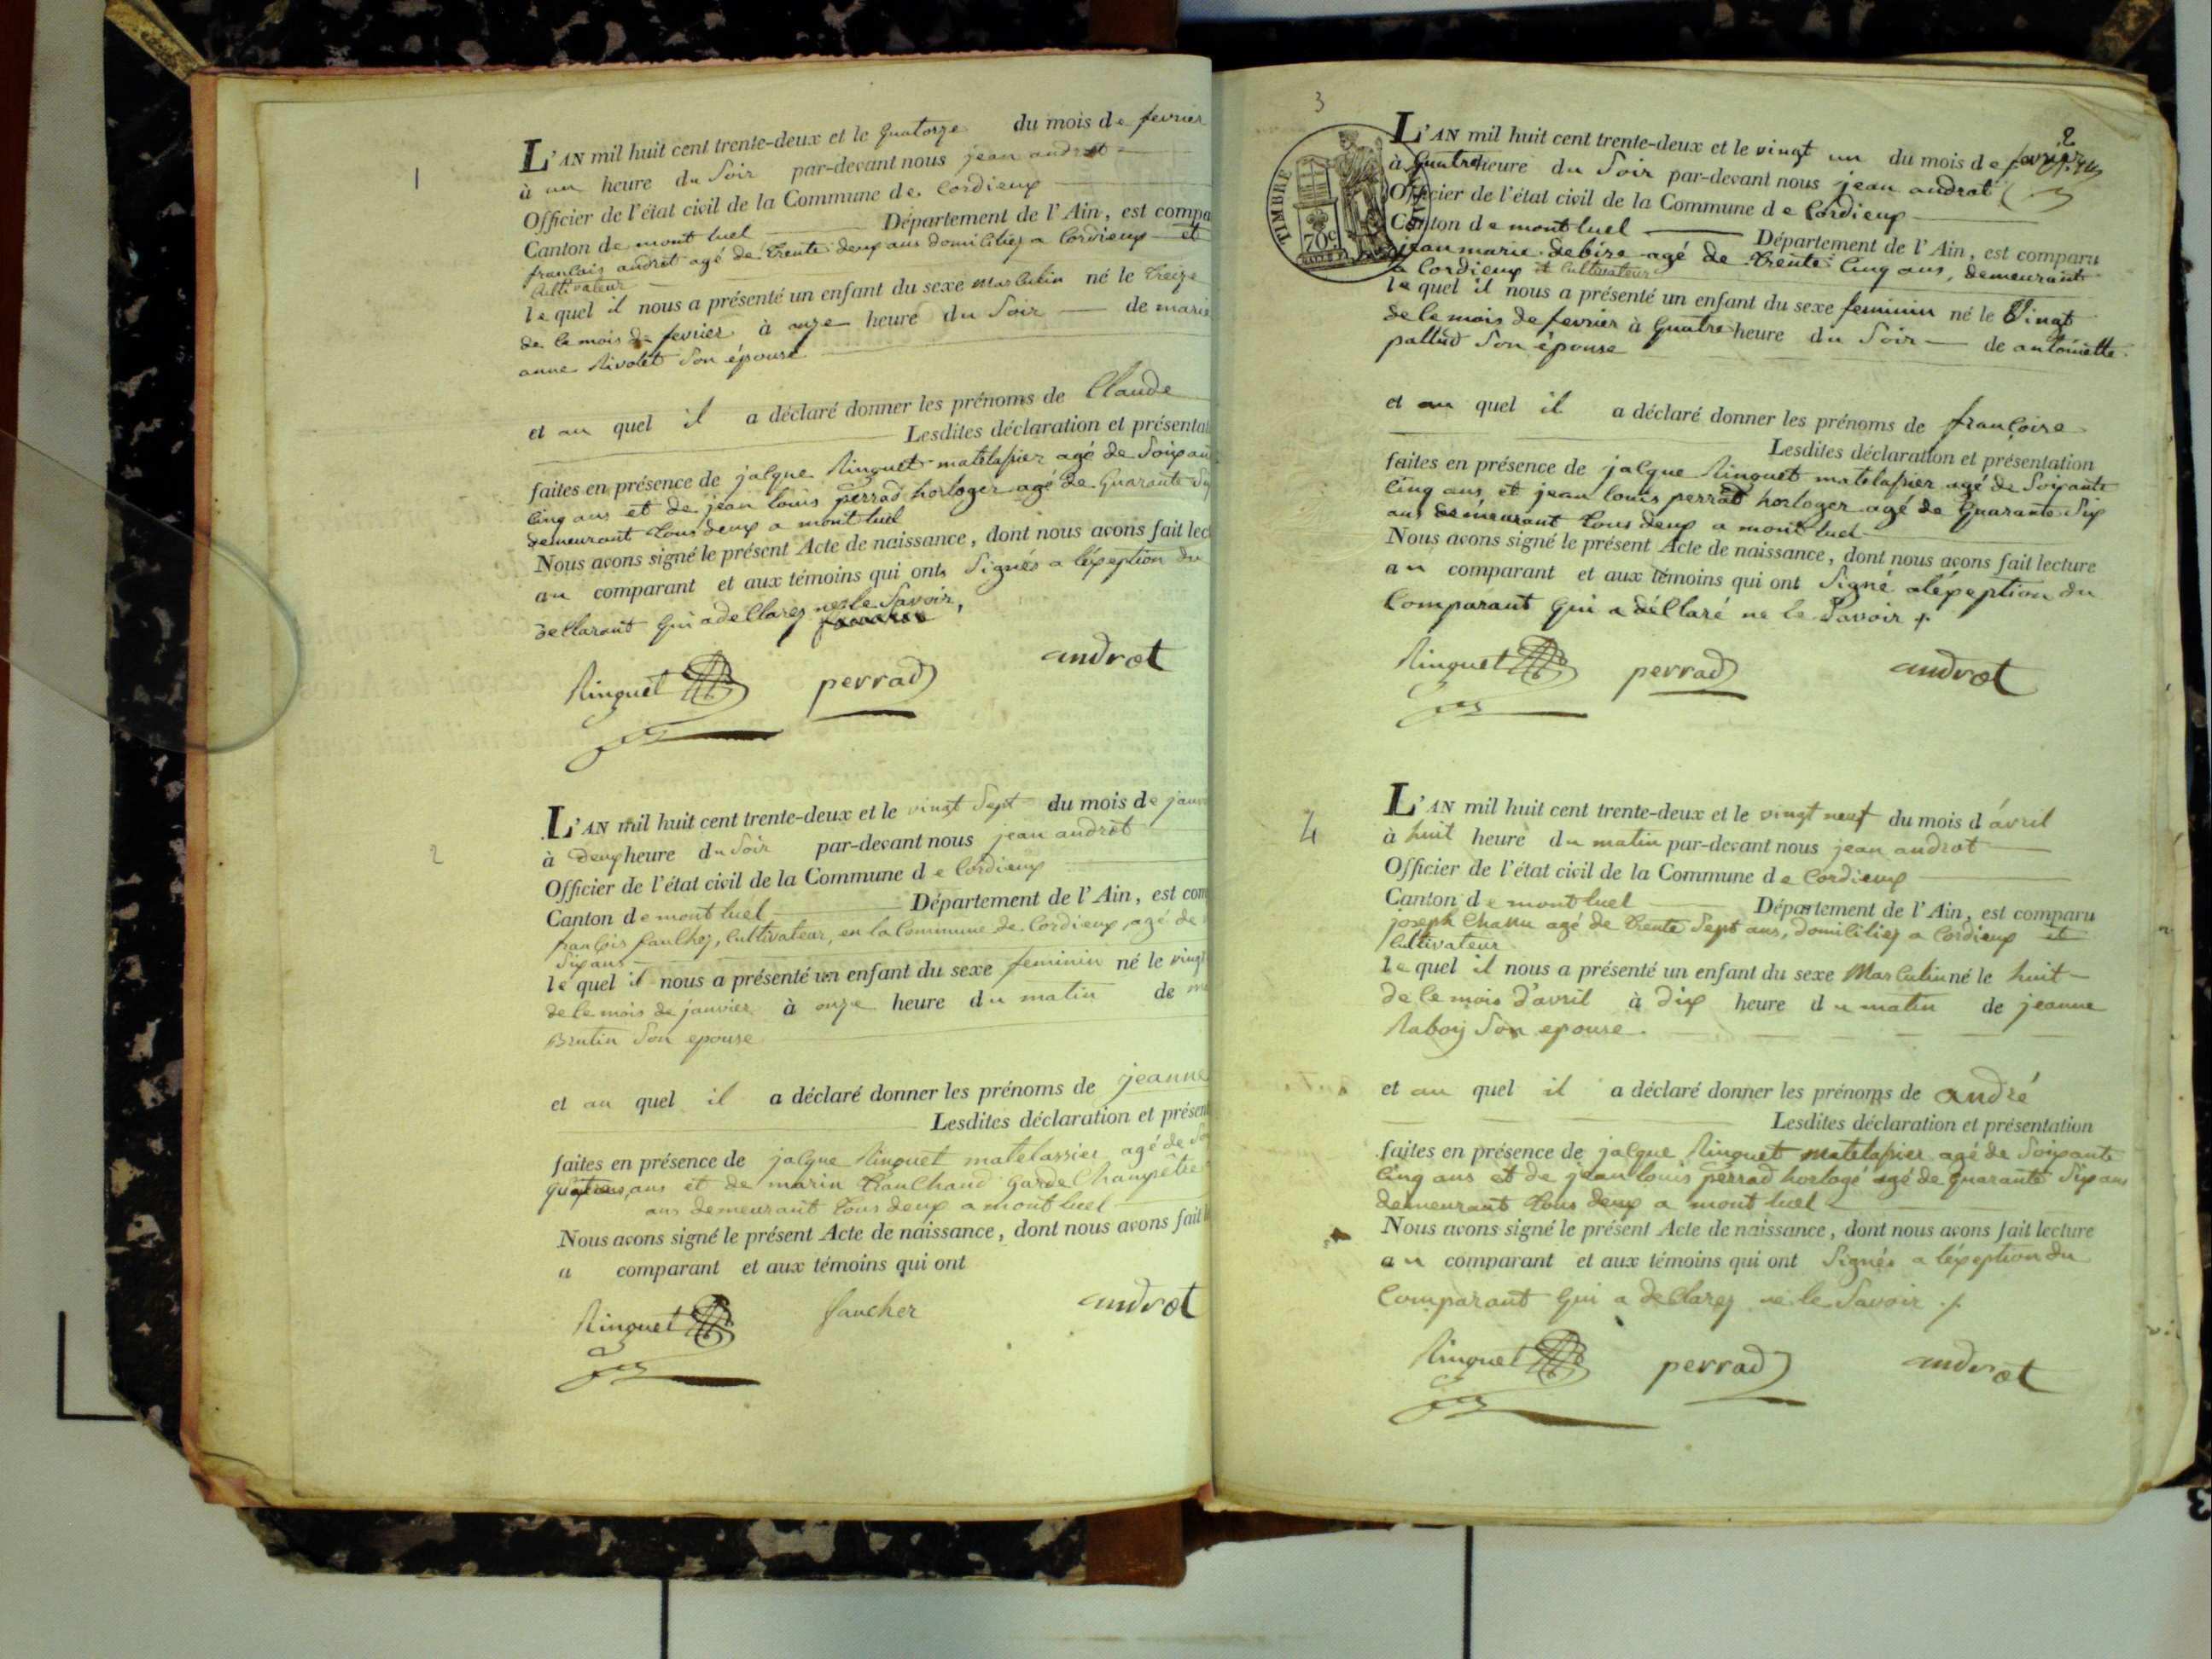 1
L'AN mil huit cent trente-deux et le quatorze du mois de fevrier
à un heure du Soir par-devant nous jean androt
Officier de l'état civil de la Commune de Cordieux
Canton de mont luel Département de l'Ain, est compa
francais androt agé de trente deux ans domiciliez a Cordieux et
Cultivateur
lequel il nous a présenté un enfant du sexe masculin né le treize
de ce mois de fevrier à onze heure du Soir de marie
anne Rivolet Son épouse
et au quel il a déclaré donner les prénoms de Claude
Lesdites déclaration et présenta
faites en présence de jacque Rinquet matelassier agé de Soixan
cinq ans et de jean louis perrad horloger agé de quarante Six
demeurant tous deux a mont luel
Nous avons signé le présent Acte de naissance, dont nous avons fait lec
au comparant et aux témoins qui ont Signés a lexeption du
declarant qui a declarez ne le Savoir,
Rinquet perrad androt
2
L'AN mil huit cent trente-deux et le vingt Sept du mois de janv
à deux heure du Soir par-devant nous jean androt
Officier de l'état civil de la Commune de Cordieux
Canton de mont luel Département de l'Ain, est com
françois fauchez, Cultivateur, en la Commune de Cordieux, agé de
Six ans
lequel il nous a présenté un enfant du sexe feminin né le vingt
de ce mois de janvier à onze heure du matin de
Brutin Son epouse
et au quel il a déclaré donner les prénoms de jeanne
Lesdites déclaration et présen
faites en présence de jacque Rinquet matelassier agé de
ans et de marin garde Champêtre
ans demeurant tous deux a mont luel
Nous avons signé le présent Acte de naissance, dont nous avons fait
a comparant et aux témoins qui ont
Rinquet faucher androt
3
2
TIMBRE
70c
L'AN mil huit cent trente-deux et le vingt un du mois de fevrier
à quatre heure du Soir par-devant nous jean androt
Officier de l'état civil de la Commune de Cordieux
Canton de mont luel Département de l'Ain, est comparu
jean marie debise agé de trente cinq ans, demeurant
a Cordieux et cultivateur
lequel il nous a présenté un enfant du sexe feminin né le Vingt
de ce mois de fevrier à quatre heure du Soir de antoinette
pallud Son épouse
et au quel il a déclaré donner les prénoms de françoise
Lesdites déclaration et présentation
faites en présence de jacque Rinquet matelassier agé de Soixante
cinq ans et jean louis perrad horloger agé de quarante Six
ans demeurant tous deux a mont luel
Nous avons signé le présent Acte de naissance, dont nous avons fait lecture
au comparant et aux témoins qui ont Signé a léxeption du
Comparant qui a déclaré ne le Savoir
Rinquet perrad androt
4
L'AN mil huit cent trente-deux et le vingt neuf du mois d'avril
à huit heure du matin par-devant nous jean androt
Officier de l'état civil de la Commune de Cordieux
Canton de mont luel Département de l'Ain, est comparu
joseph Chanu agé de trente Sept ans, domiciliez a Cordieux et
Cultivateur
lequel il nous a présenté un enfant du sexe Masculin né le huit
de ce mois d'avril à dix heure du matin de jeanne
Raboy Son epouse.
et au quel il a déclaré donner les prénoms de andré
Lesdites déclaration et présentation
faites en présence de jacque Rinquet matelassier agé de Soixante
cinq ans et de jean louis perrad horlogé agé de quarante Six ans
demeurant tous deux a mont luel
Nous avons signé le présent Acte de naissance, dont nous avons fait lecture
au comparant et aux témoins qui ont Signés a léxeption du
Comparant qui a declarez ne le Savoir
Rinquet perrad androt